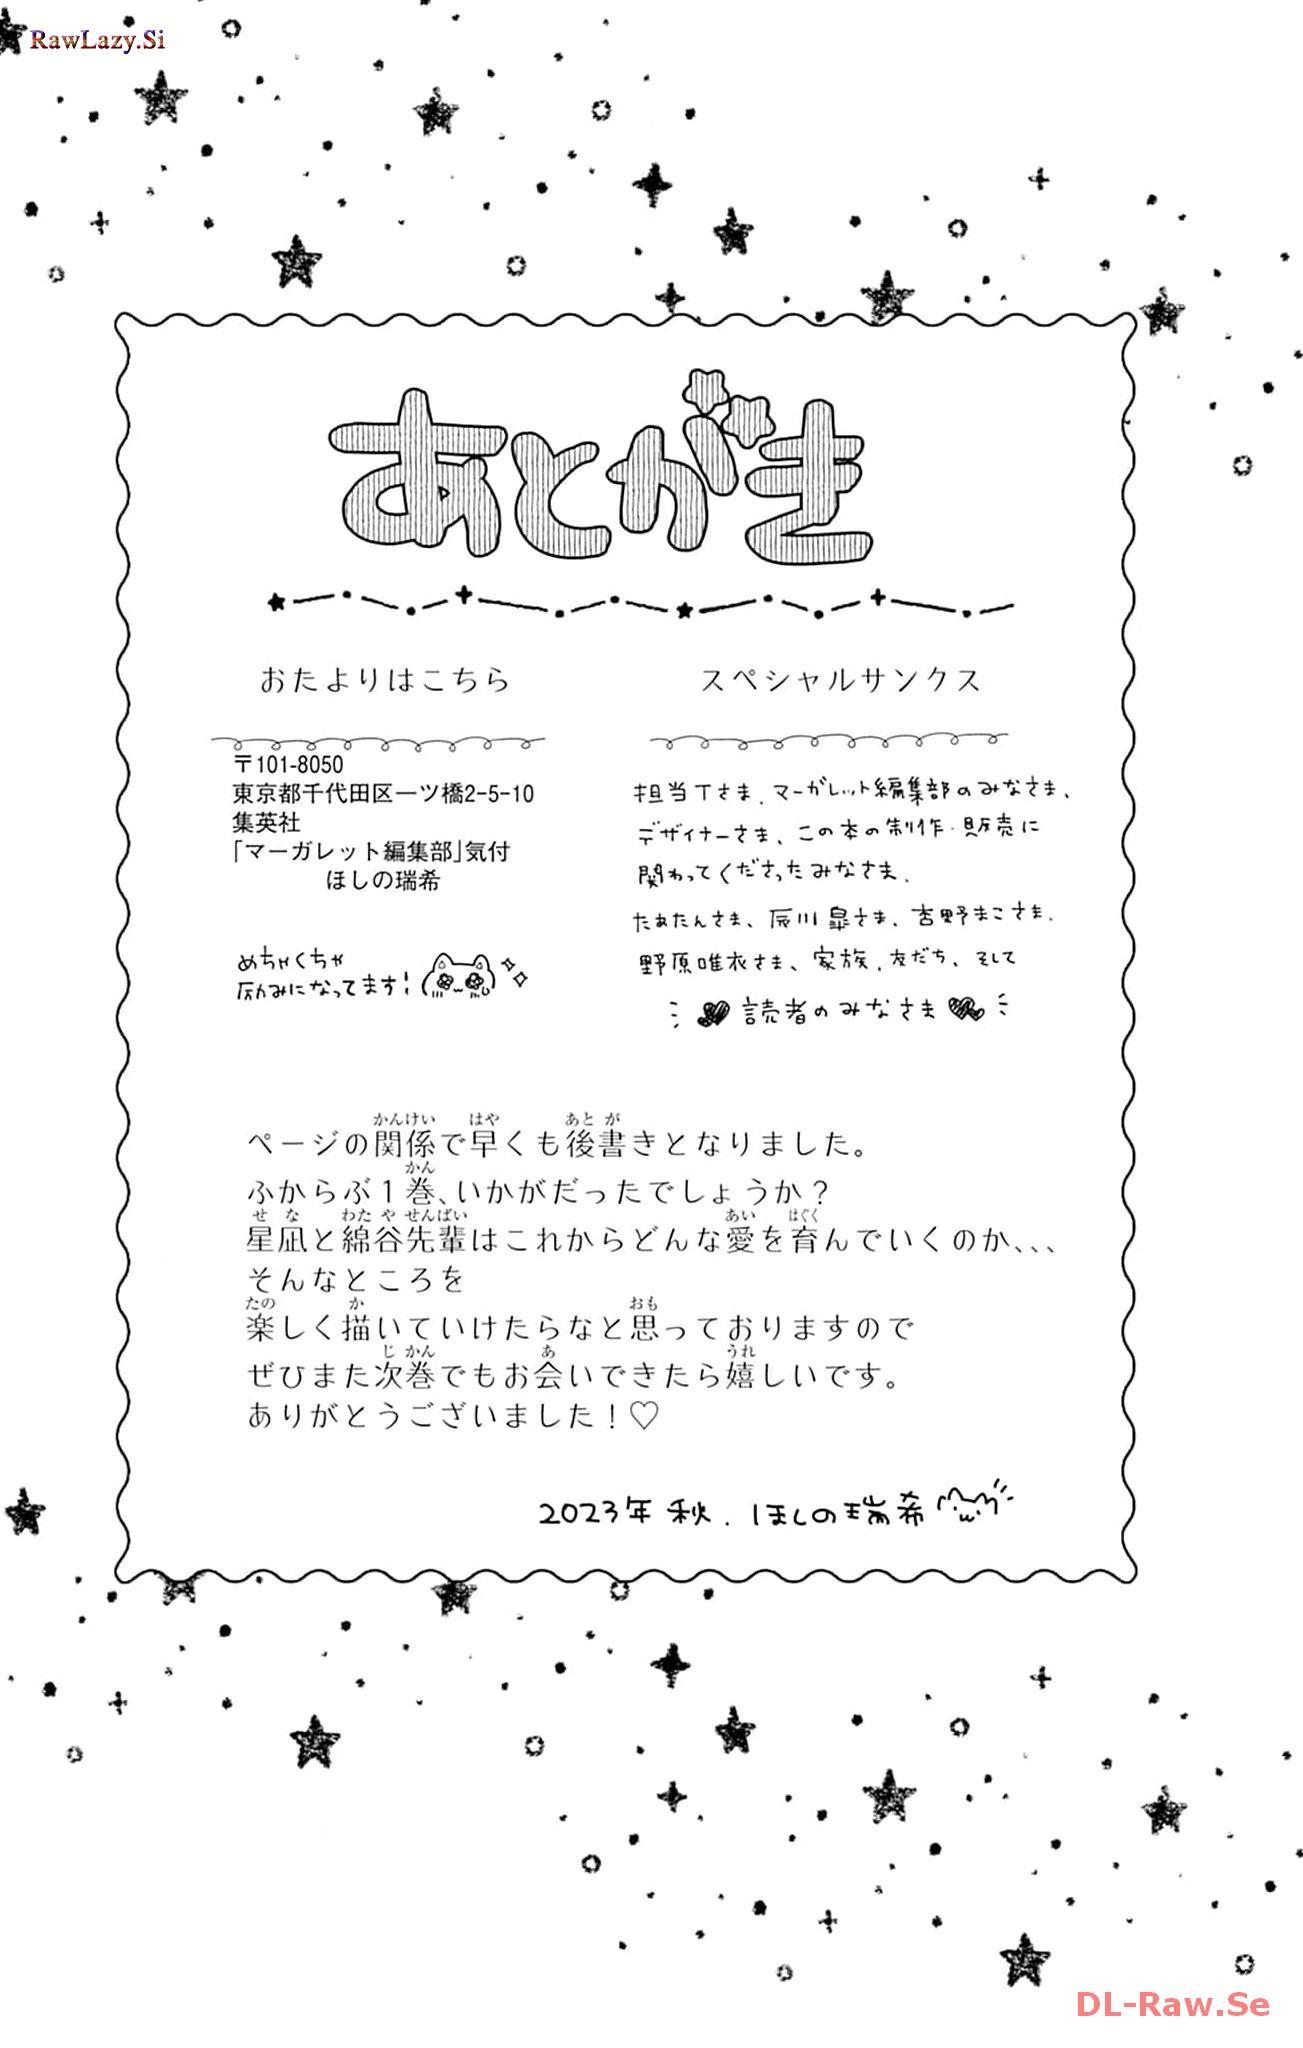 RawLazy.Si
あとがき
おたよりはこちら
〒101-8050
東京都千代田区一ツ橋2-5-10
集英社
「マーガレット編集部」気付
ほしの瑞希
めちゃくちゃ
励みになってます!
スペシャルサンクス
担当Tさま、マーガレット編集部のみなさま、
デザイナーさま、この本の制作・販売に
関わってくださったみなさま、
たぁたんさま、辰川皐さま、吉野まこさま、
野原唯衣さま、家族、友だち、そして
読者のみなさま
ページの関係で早くも後書きとなりました。
ふからぶ1巻、いかがだったでしょうか?
星凪と綿谷先輩はこれからどんな愛を育んでいくのか、、、
そんなところを
楽しく描いていけたらなと思っておりますので
ぜひまた次巻でもお会いできたら嬉しいです。
ありがとうございました!♡
2023年 秋. ほしの瑞希
DL-Raw.Se